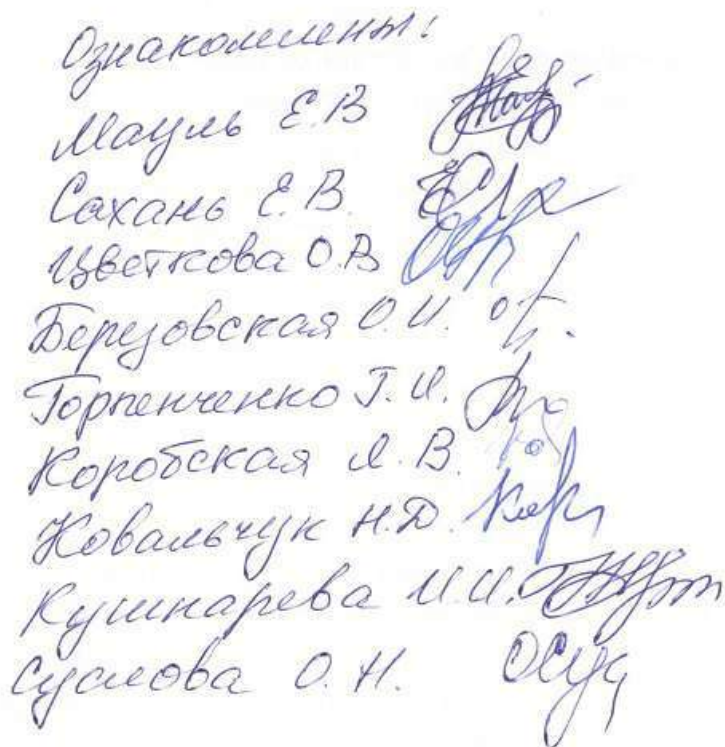 Ознакомлены:
Мауль Е.В
Сахань Е.В.
Цветкова О.В
Березовская О.И.
Горпенченко Г.И.
Коробская Л.В.
Ковальчук Н.Д.
Кушнарева И.И.
Суслова О.Н.